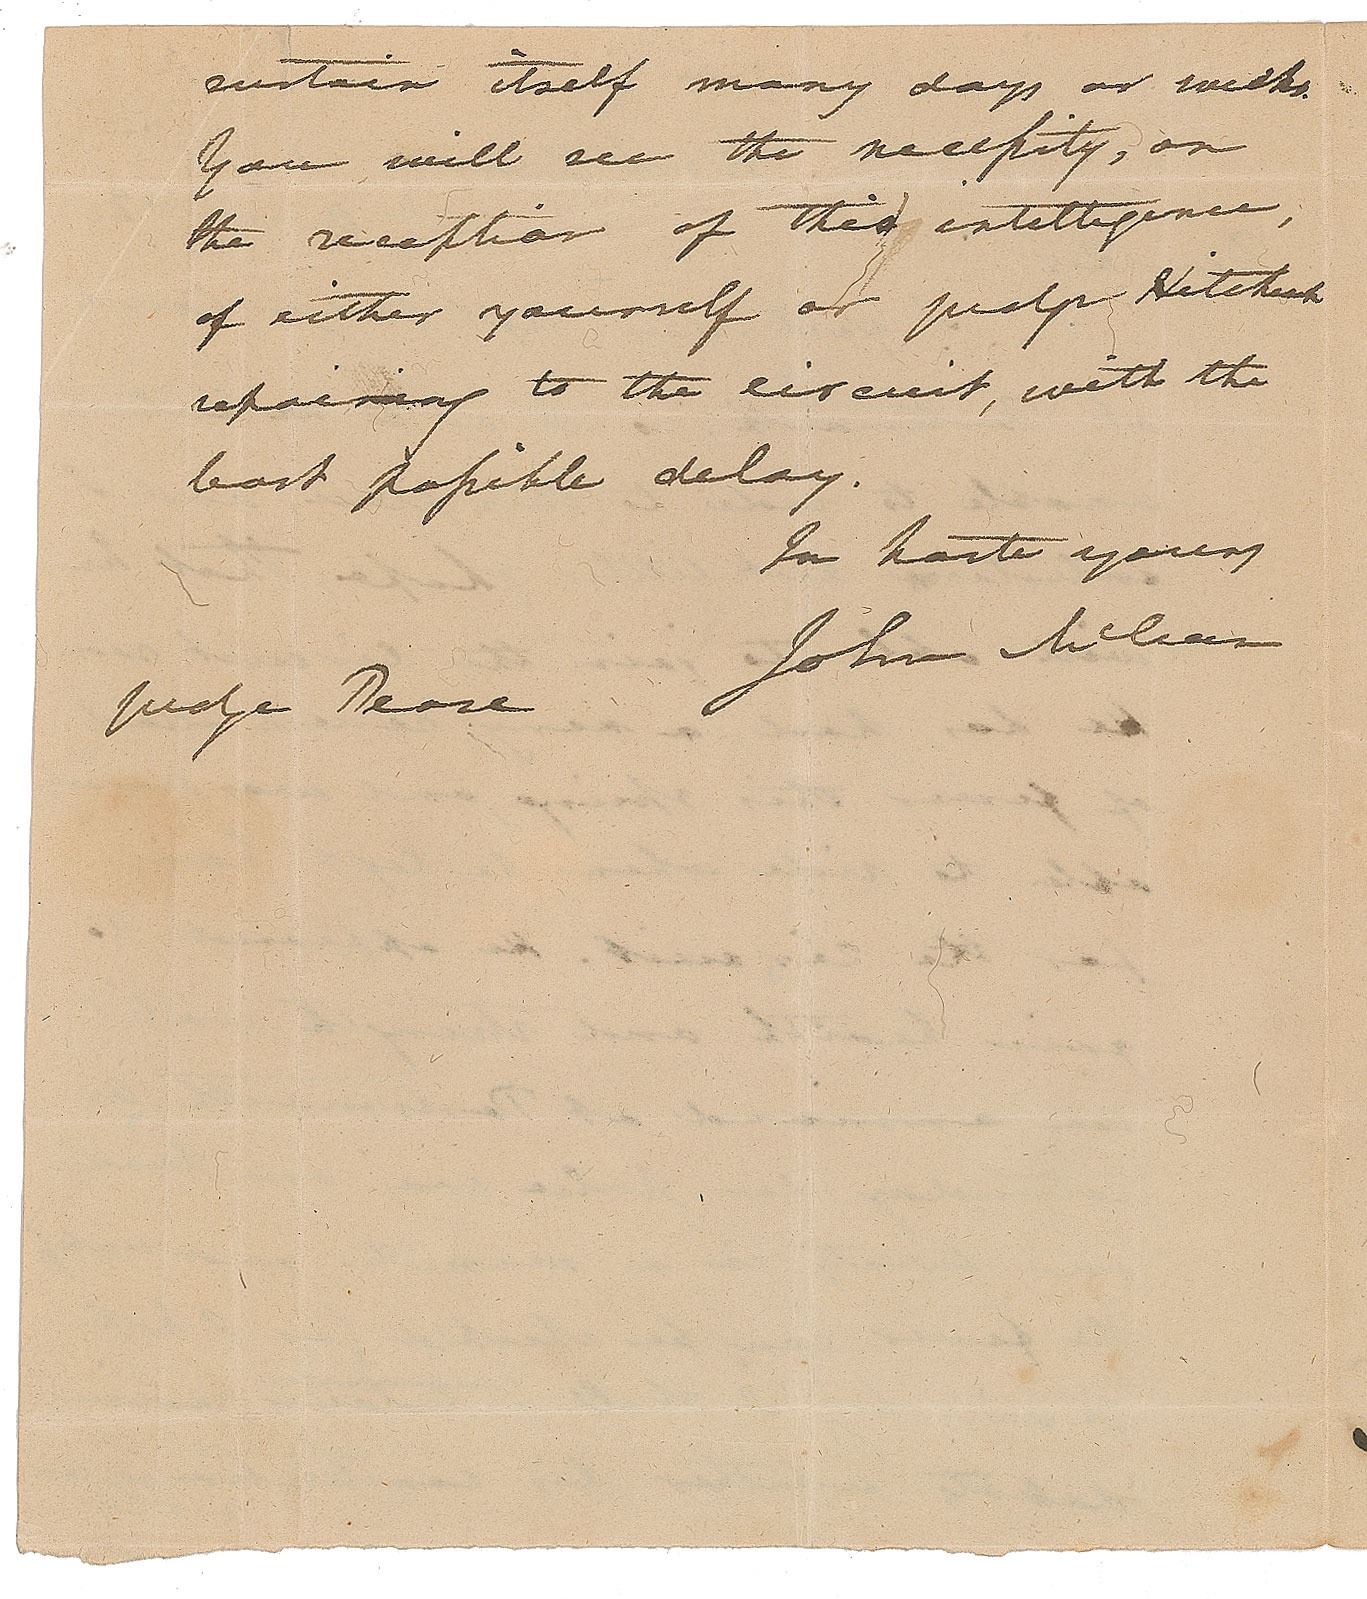 sustain itself many days or weeks.
You will see the necessity, on
the reception of this intelligence,
of either yourself or judge Hitchcock
repairing to the circuit, with the
least possible delay.
In haste yours
John McLean
judge Pease